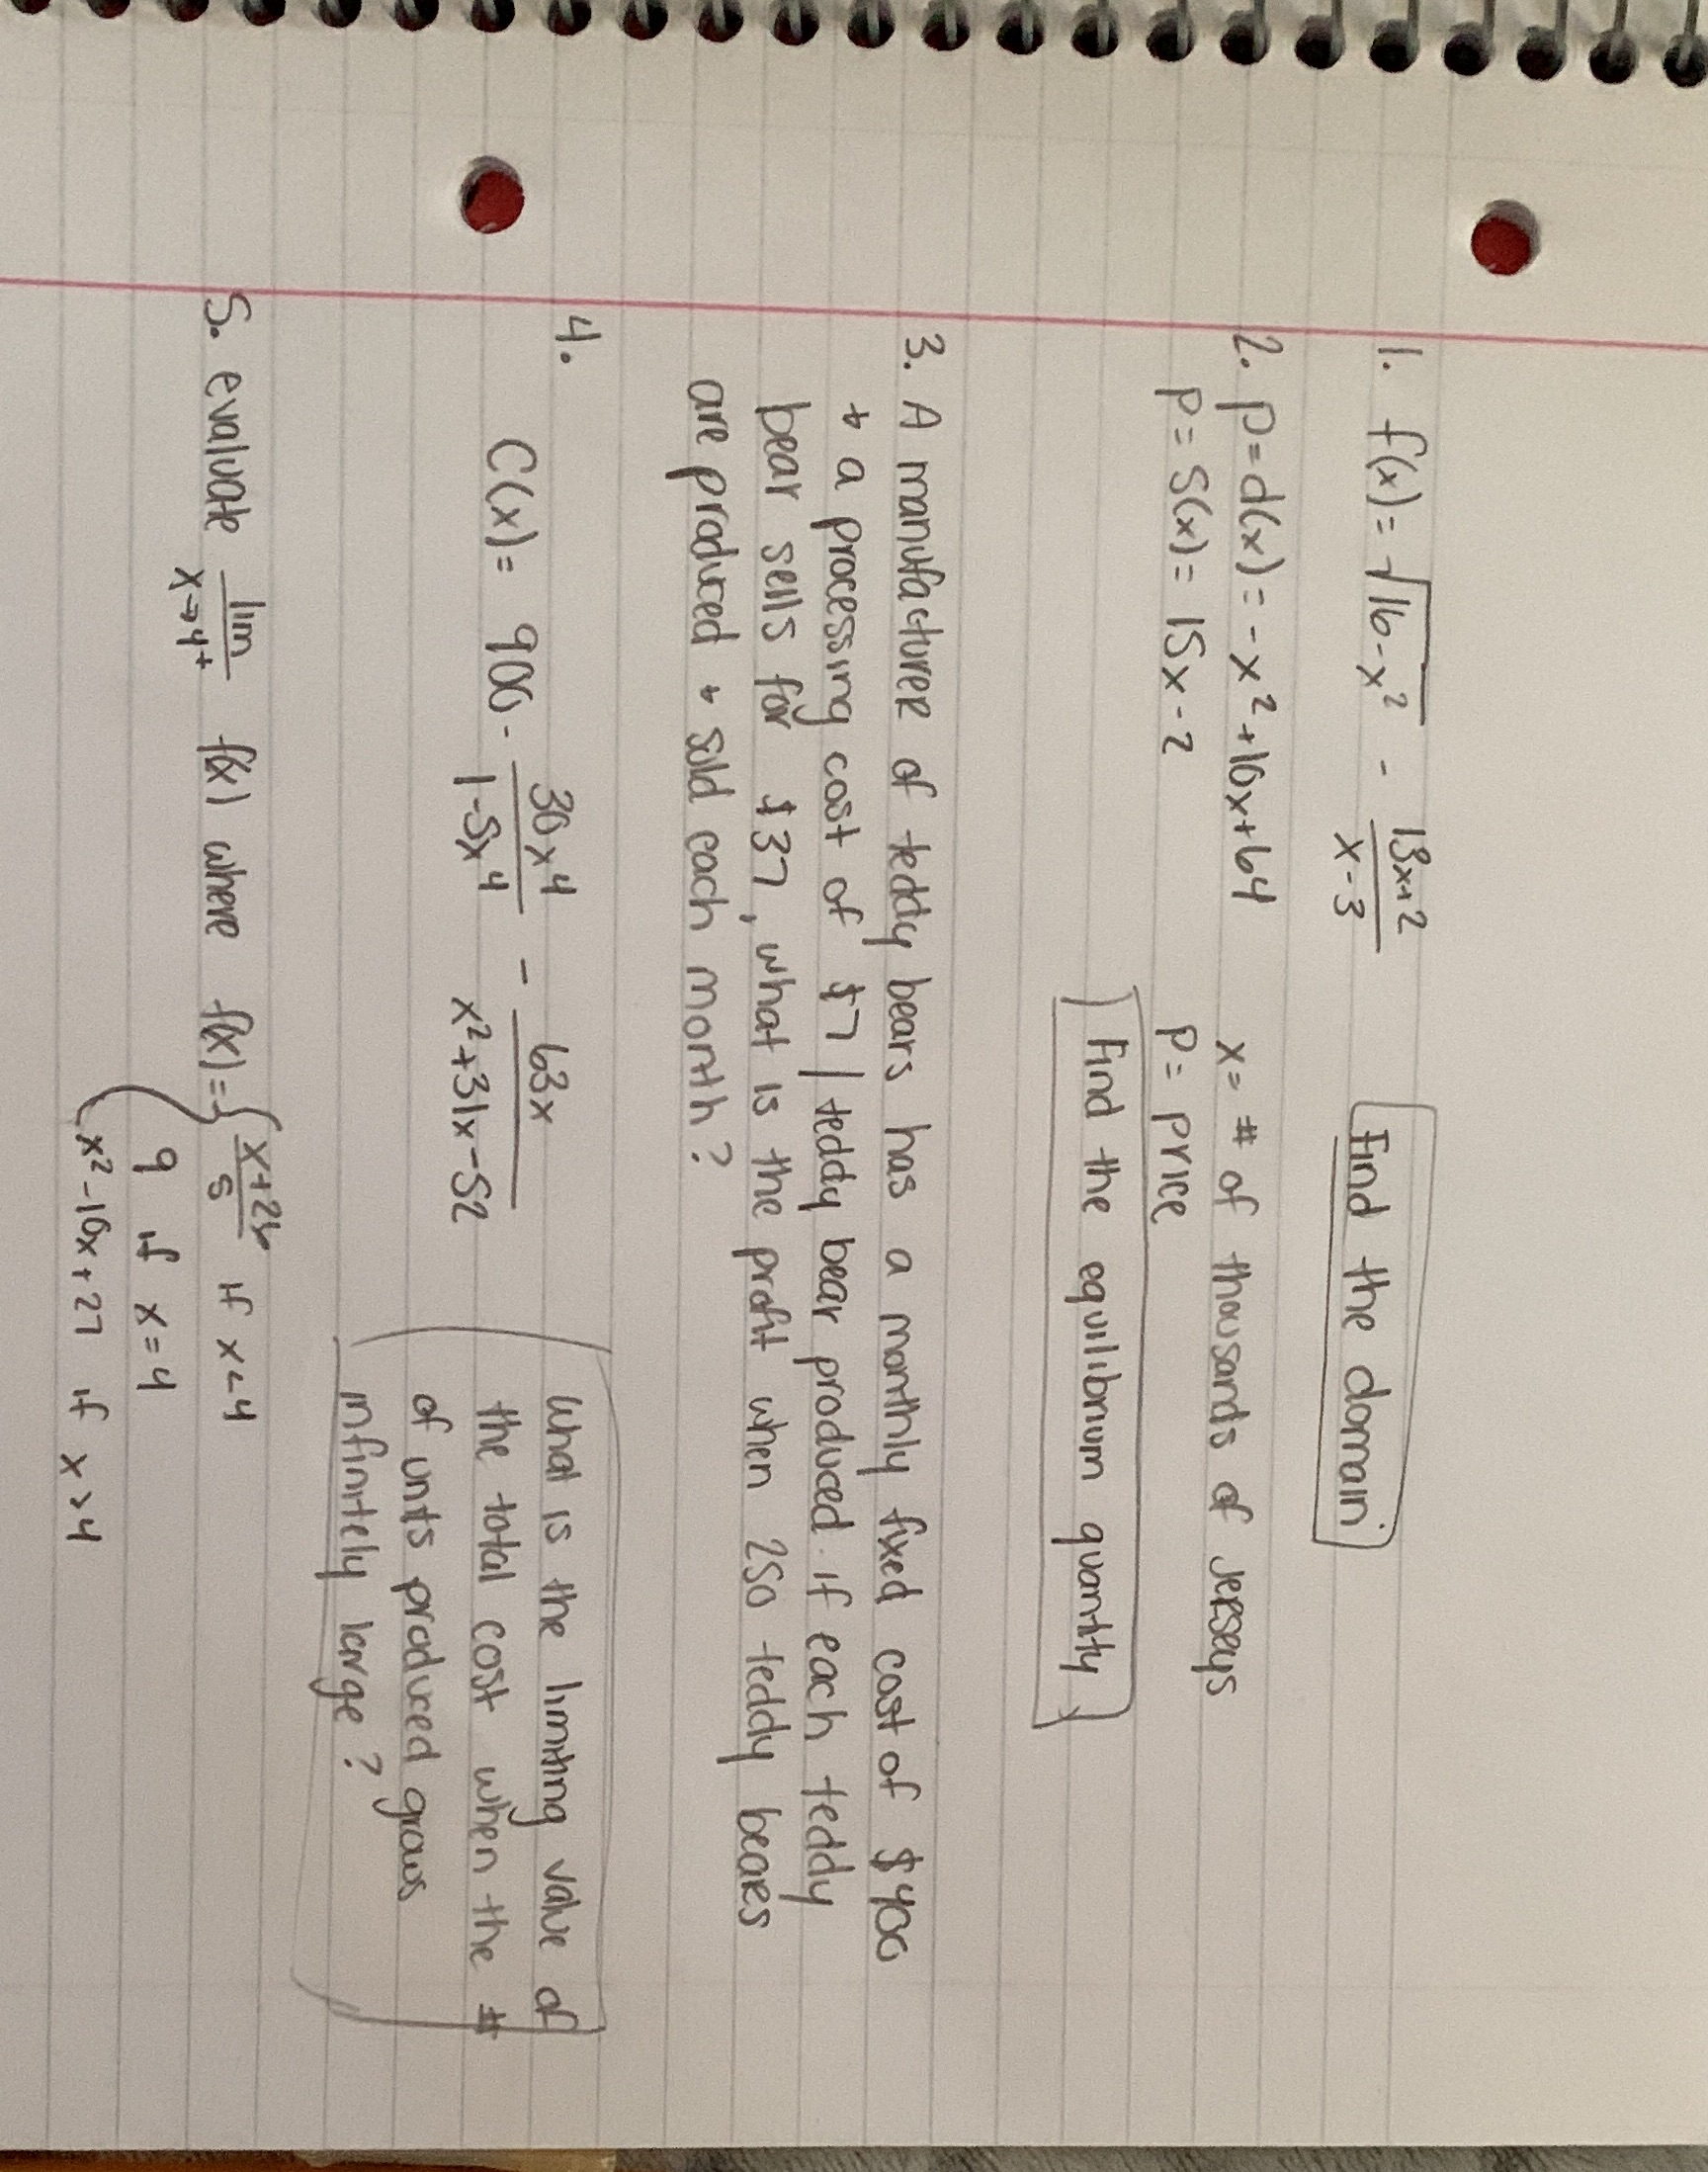 1. f(x) = √16-x² - 13x+2 / x-3 Find the domain
2. p=d(x) = -x²+10x+64 x= # of thousands of Jerseys
p= s(x) = 15x-2 p= price
Find the equilibrium quantity
3. A manufacturer of teddy bears has a monthly fixed cost of $400
+ a processing cost of $7 / teddy bear produced. if each teddy
bear sells for $37, what is the profit when 250 teddy bears
are produced + sold each month?
4.
C(x) = 900 - 30x⁴ / 1-5x⁴ - 63x / x²+31x-52
What is the limiting value of
the total cost when the #
of units produced grows
infinitely large?
5. evaluate lim x→4⁺ f(x) where f(x) = { x+26 / 5 if x<4
9 if x=4
x²-10x+27 if x>4